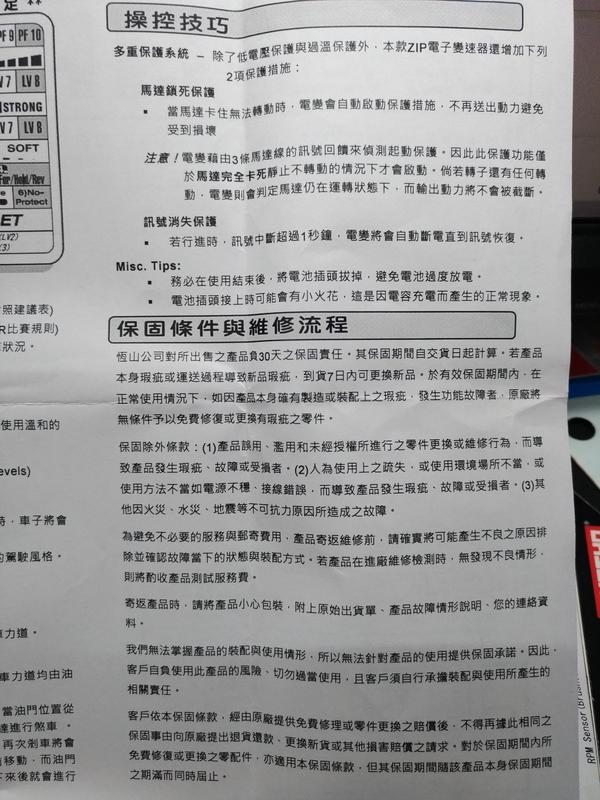 定 **
PF 9 PF 10
V 7 LV 8
STRONG
V 7 LV 8
SOFT
For/Hold/Rev
6)No-
Protect
ET
(LV2)
(3)
照建議表)
R比賽規則)
狀況。
使用溫和的
evels)
時，車子將會
的駕駛風格。
車力道。
車力道均由油
當油門位置從
達進行煞車。
再次剎車將會
前移動，而油門
下來後就會進行
操控技巧
多重保護系統 – 除了低電壓保護與過溫保護外，本款ZIP電子變速器還增加下列
2項保護措施：
馬達鎖死保護
▪ 當馬達卡住無法轉動時，電變會自動啟動保護措施，不再送出動力避免
受到損壞
注意！電變藉由3條馬達線的訊號回饋來偵測起動保護。因此此保護功能僅
於馬達完全卡死靜止不轉動的情況下才會啟動。倘若轉子還有任何轉
動，電變則會判定馬達仍在運轉狀態下，而輸出動力將不會被截斷。
訊號消失保護
▪ 若行進時，訊號中斷超過1秒鐘，電變將會自動斷電直到訊號恢復。
Misc. Tips:
▪ 務必在使用結束後，將電池插頭拔掉，避免電池過度放電。
▪ 電池插頭接上時可能會有小火花，這是因電容充電而產生的正常現象。
保固條件與維修流程
恆山公司對所出售之產品負30天之保固責任。其保固期間自交貨日起計算。若產品
本身瑕疵或運送過程導致新品瑕疵，到貨7日內可更換新品。於有效保固期間內，在
正常使用情況下，如因產品本身確有製造或裝配上之瑕疵，發生功能故障者，原廠將
無條件予以免費修復或更換有瑕疵之零件。
保固除外條款：(1)產品誤用、濫用和未經授權所進行之零件更換或維修行為，而導
致產品發生瑕疵、故障或受損者。(2)人為使用上之疏失，或使用環境場所不當，或
使用方法不當如電源不穩、接線錯誤，而導致產品發生瑕疵、故障或受損者。(3)其
他因火災、水災、地震等不可抗力原因所造成之故障。
為避免不必要的服務與郵寄費用，產品寄返維修前，請確實將可能產生不良之原因排
除並確認故障當下的狀態與裝配方式。若產品在進廠維修檢測時，無發現不良情形，
則將酌收產品測試服務費。
寄返產品時，請將產品小心包裝，附上原始出貨單、產品故障情形說明、您的連絡資
料。
我們無法掌握產品的裝配與使用情形，所以無法針對產品的使用提供保固承諾。因此，
客戶自負使用此產品的風險、切勿過當使用，且客戶須自行承擔裝配與使用所產生的
相關責任。
客戶依本保固條款，經由原廠提供免費修理或零件更換之賠償後，不得再據此相同之
保固事由向原廠提出退貨還款、更換新貨或其他損害賠償之請求。對於保固期間內所
免費修復或更換之零配件，亦適用本保固條款，但其保固期間隨該產品本身保固期間
之期滿而同時屆止。
RPM Sensor (Brush